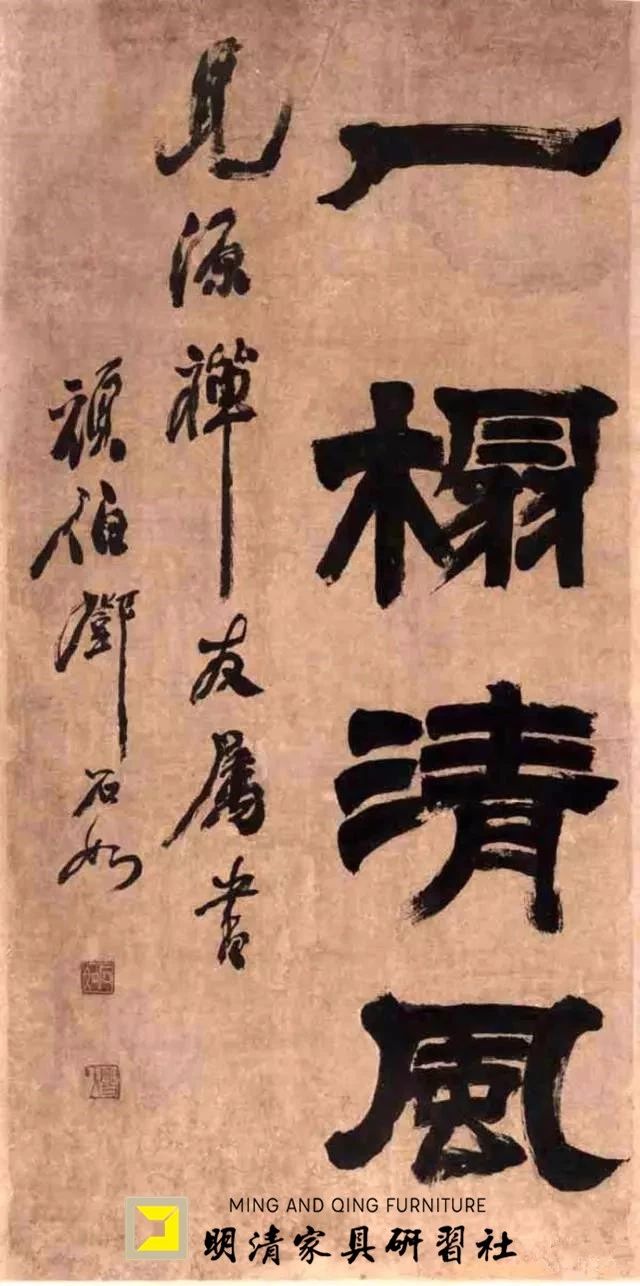 一榻清风
见源禅友属书
顽伯邓石如
MING AND QING FURNITURE
明清家具研习社